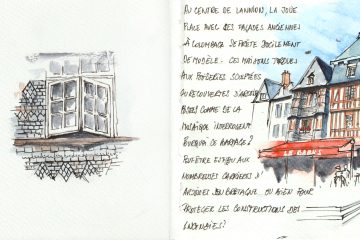 AU CENTRE DE LANNION, LA JOLIE
PLACE AVEC SES FAÇADES ANCIENNES
À COLOMBAGE SE PRÊTE DOCILEMENT
DE MODÈLE. CES MAISONS TORDUES
AUX POUTRES SCULPTÉES
OU RECOUVERTES D'ARDOISES
COMME DE LA
MOSAÏQUE INTERROGENT
POURQUOI CE BARDAGE?
PEUT-ÊTRE EST-CE AUX
NOMBREUSES CARRIÈRES D'
ARDOISES EN BRETAGNE OU BIEN POUR
PROTÉGER LES CONSTRUCTIONS DES
INCENDIES?
LE BARAC'H